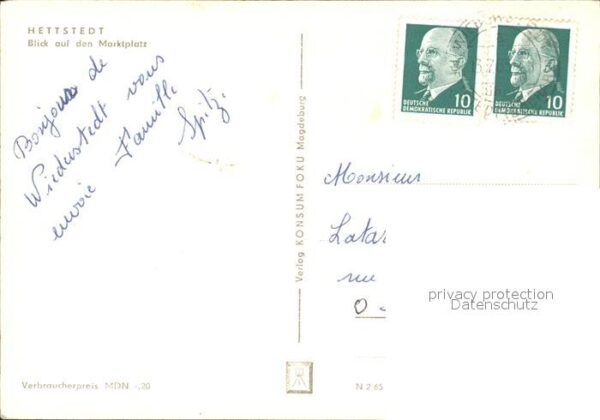 HETTSTEDT
Blick auf den Marktplatz
Bonjour de
Wiederstedt vous
envoie Famille
Spitz.
Verlag KONSUM FOKU Magdeburg
10
DEUTSCHE
DEMOKRATISCHE REPUBLIK
10
DEUTSCHE
DEMOKRATISCHE REPUBLIK
Monsieur
Latar
rue
privacy protection
Datenschutz
Verbraucherpreis MDN -,20
N 2 65